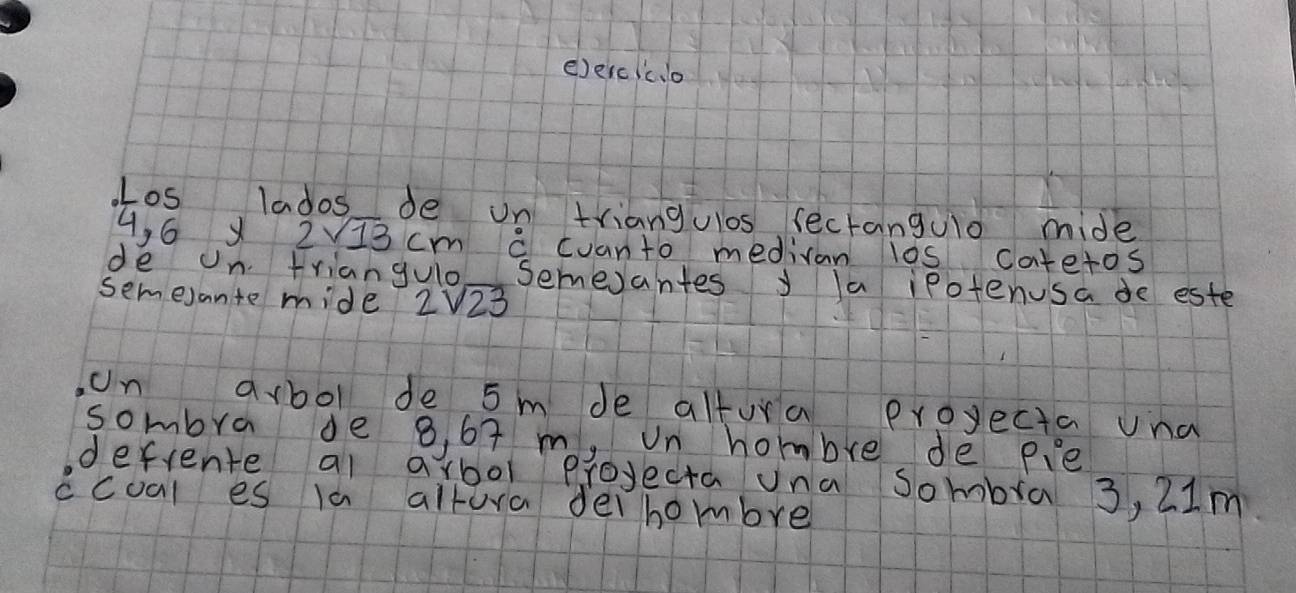 ejercicio
.Los lados de un triangulos rectangulo mide
4,6 y 2√13 cm ¿ cuanto mediran los catetos
de un. triangulo semejantes y la ipotenusa de este
semejante mide 2√23
.Un arbol de 5m de altura proyecta una
sombra de 8,67 m, un hombre de pie
.defrente al arbol proyecta una sombra 3,21m.
¿cual es la altura del hombre